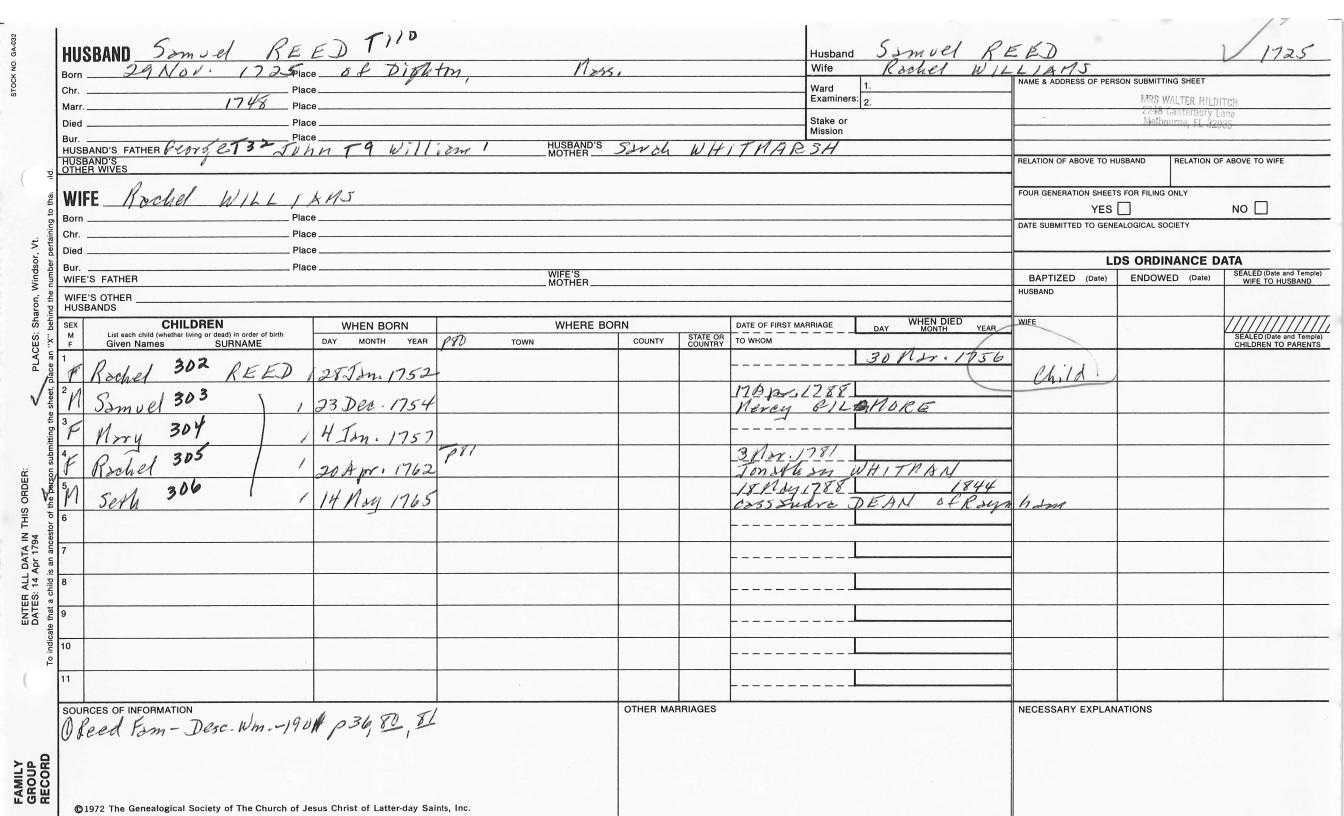 STOCK NO. GA-032
HUSBAND Samuel REED T110
Born 29 Nov. 1725 Place of Dighton, Mass.
Chr. Place
Marr. 1748 Place
Died Place
Bur. Place
HUSBAND'S FATHER George T32 John T9 William 1 HUSBAND'S MOTHER Sarah WHITMARSH
HUSBAND'S OTHER WIVES
Husband Samuel REED 1725
Wife Rachel WILLIAMS
Ward Examiners: 1.
2.
Stake or Mission
NAME & ADDRESS OF PERSON SUBMITTING SHEET
MRS WALTER HILDITCH
Canterbury Lane
Melbourne, FL
RELATION OF ABOVE TO HUSBAND RELATION OF ABOVE TO WIFE
FOUR GENERATION SHEETS FOR FILING ONLY
YES NO
DATE SUBMITTED TO GENEALOGICAL SOCIETY
WIFE Rachel WILLIAMS
Born Place
Chr. Place
Died Place
Bur. Place
WIFE'S FATHER WIFE'S MOTHER
WIFE'S OTHER HUSBANDS
LDS ORDINANCE DATA
BAPTIZED (Date) ENDOWED (Date) SEALED (Date and Temple) WIFE TO HUSBAND
HUSBAND
WIFE
SEALED (Date and Temple) CHILDREN TO PARENTS
SEX M F CHILDREN WHEN BORN WHERE BORN DATE OF FIRST MARRIAGE WHEN DIED
List each child (whether living or dead) in order of birth
Given Names SURNAME DAY MONTH YEAR p80 TOWN COUNTY STATE OR COUNTRY TO WHOM DAY MONTH YEAR
1 F Rachel 302 REED 1 28 Jan. 1752 30 Mar. 1756 Child
2 M Samuel 303 1 23 Dec. 1754 17 Apr. 1788
Mercy GILMORE
3 F Mary 304 1 4 Jan. 1757
4 F Rachel 305 1 20 Apr. 1762 p81 3 Mar. 1781
Jonathan WHITMAN
5 M Seth 306 1 14 May 1765 18 May 1788 1844
Cassandra DEAN of Raynham
6
7
8
9
10
11
SOURCES OF INFORMATION
① Reed Fam - Desc. Wm. -1901 p36, 80, 81
OTHER MARRIAGES
NECESSARY EXPLANATIONS
©1972 The Genealogical Society of The Church of Jesus Christ of Latter-day Saints, Inc.
FAMILY GROUP RECORD
ENTER ALL DATA IN THIS ORDER:
DATES: 14 Apr 1794 PLACES: Sharon, Windsor, Vt.
To indicate that a child is an ancestor of the person submitting the sheet, place an "X" behind the number pertaining to tha